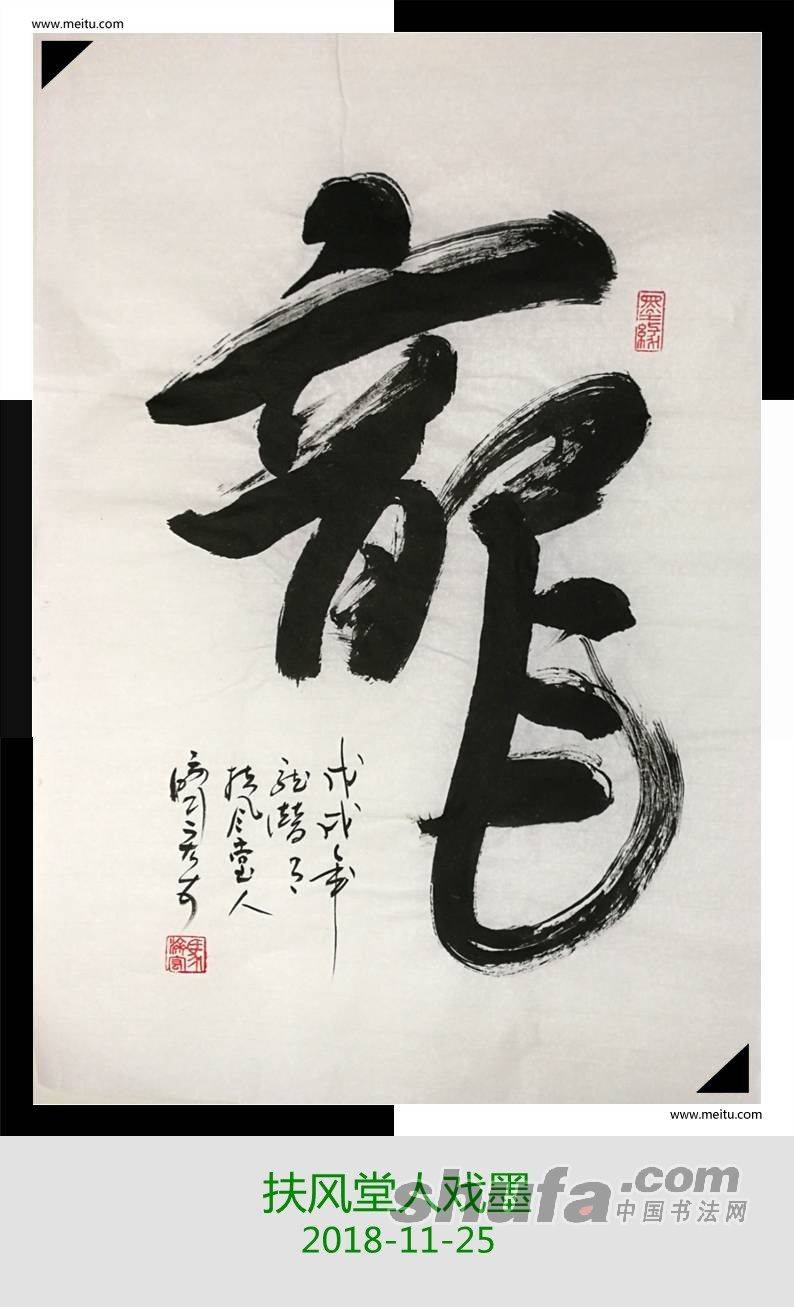 www.meitu.com
龍
墨缘
戊戌年
龙潜
扶风堂人
www.meitu.com
扶风堂人戏墨
shufa.com
中国书法网
2018-11-25